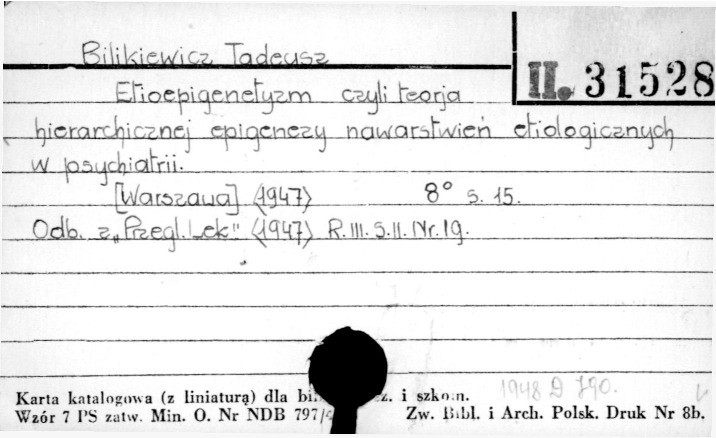 Bilikiewicz Tadeusz
II. 31528
Etioepigenetyzm czyli teorja
hierarchicznej epigenezy nawarstwień etiologicznych
w psychiatrii.
[Warszawa] <1947> 8° s. 15.
Odb. z „Przegl. Lek" <1947> R. III. S. II. Nr. 19.
1948 D 790.
Karta katalogowa (z liniaturą) dla i szkoln.
Wzór 7 PS zatw. Min. O. Nr NDB 797/ Zw. Bibl. i Arch. Polsk. Druk Nr 8b.